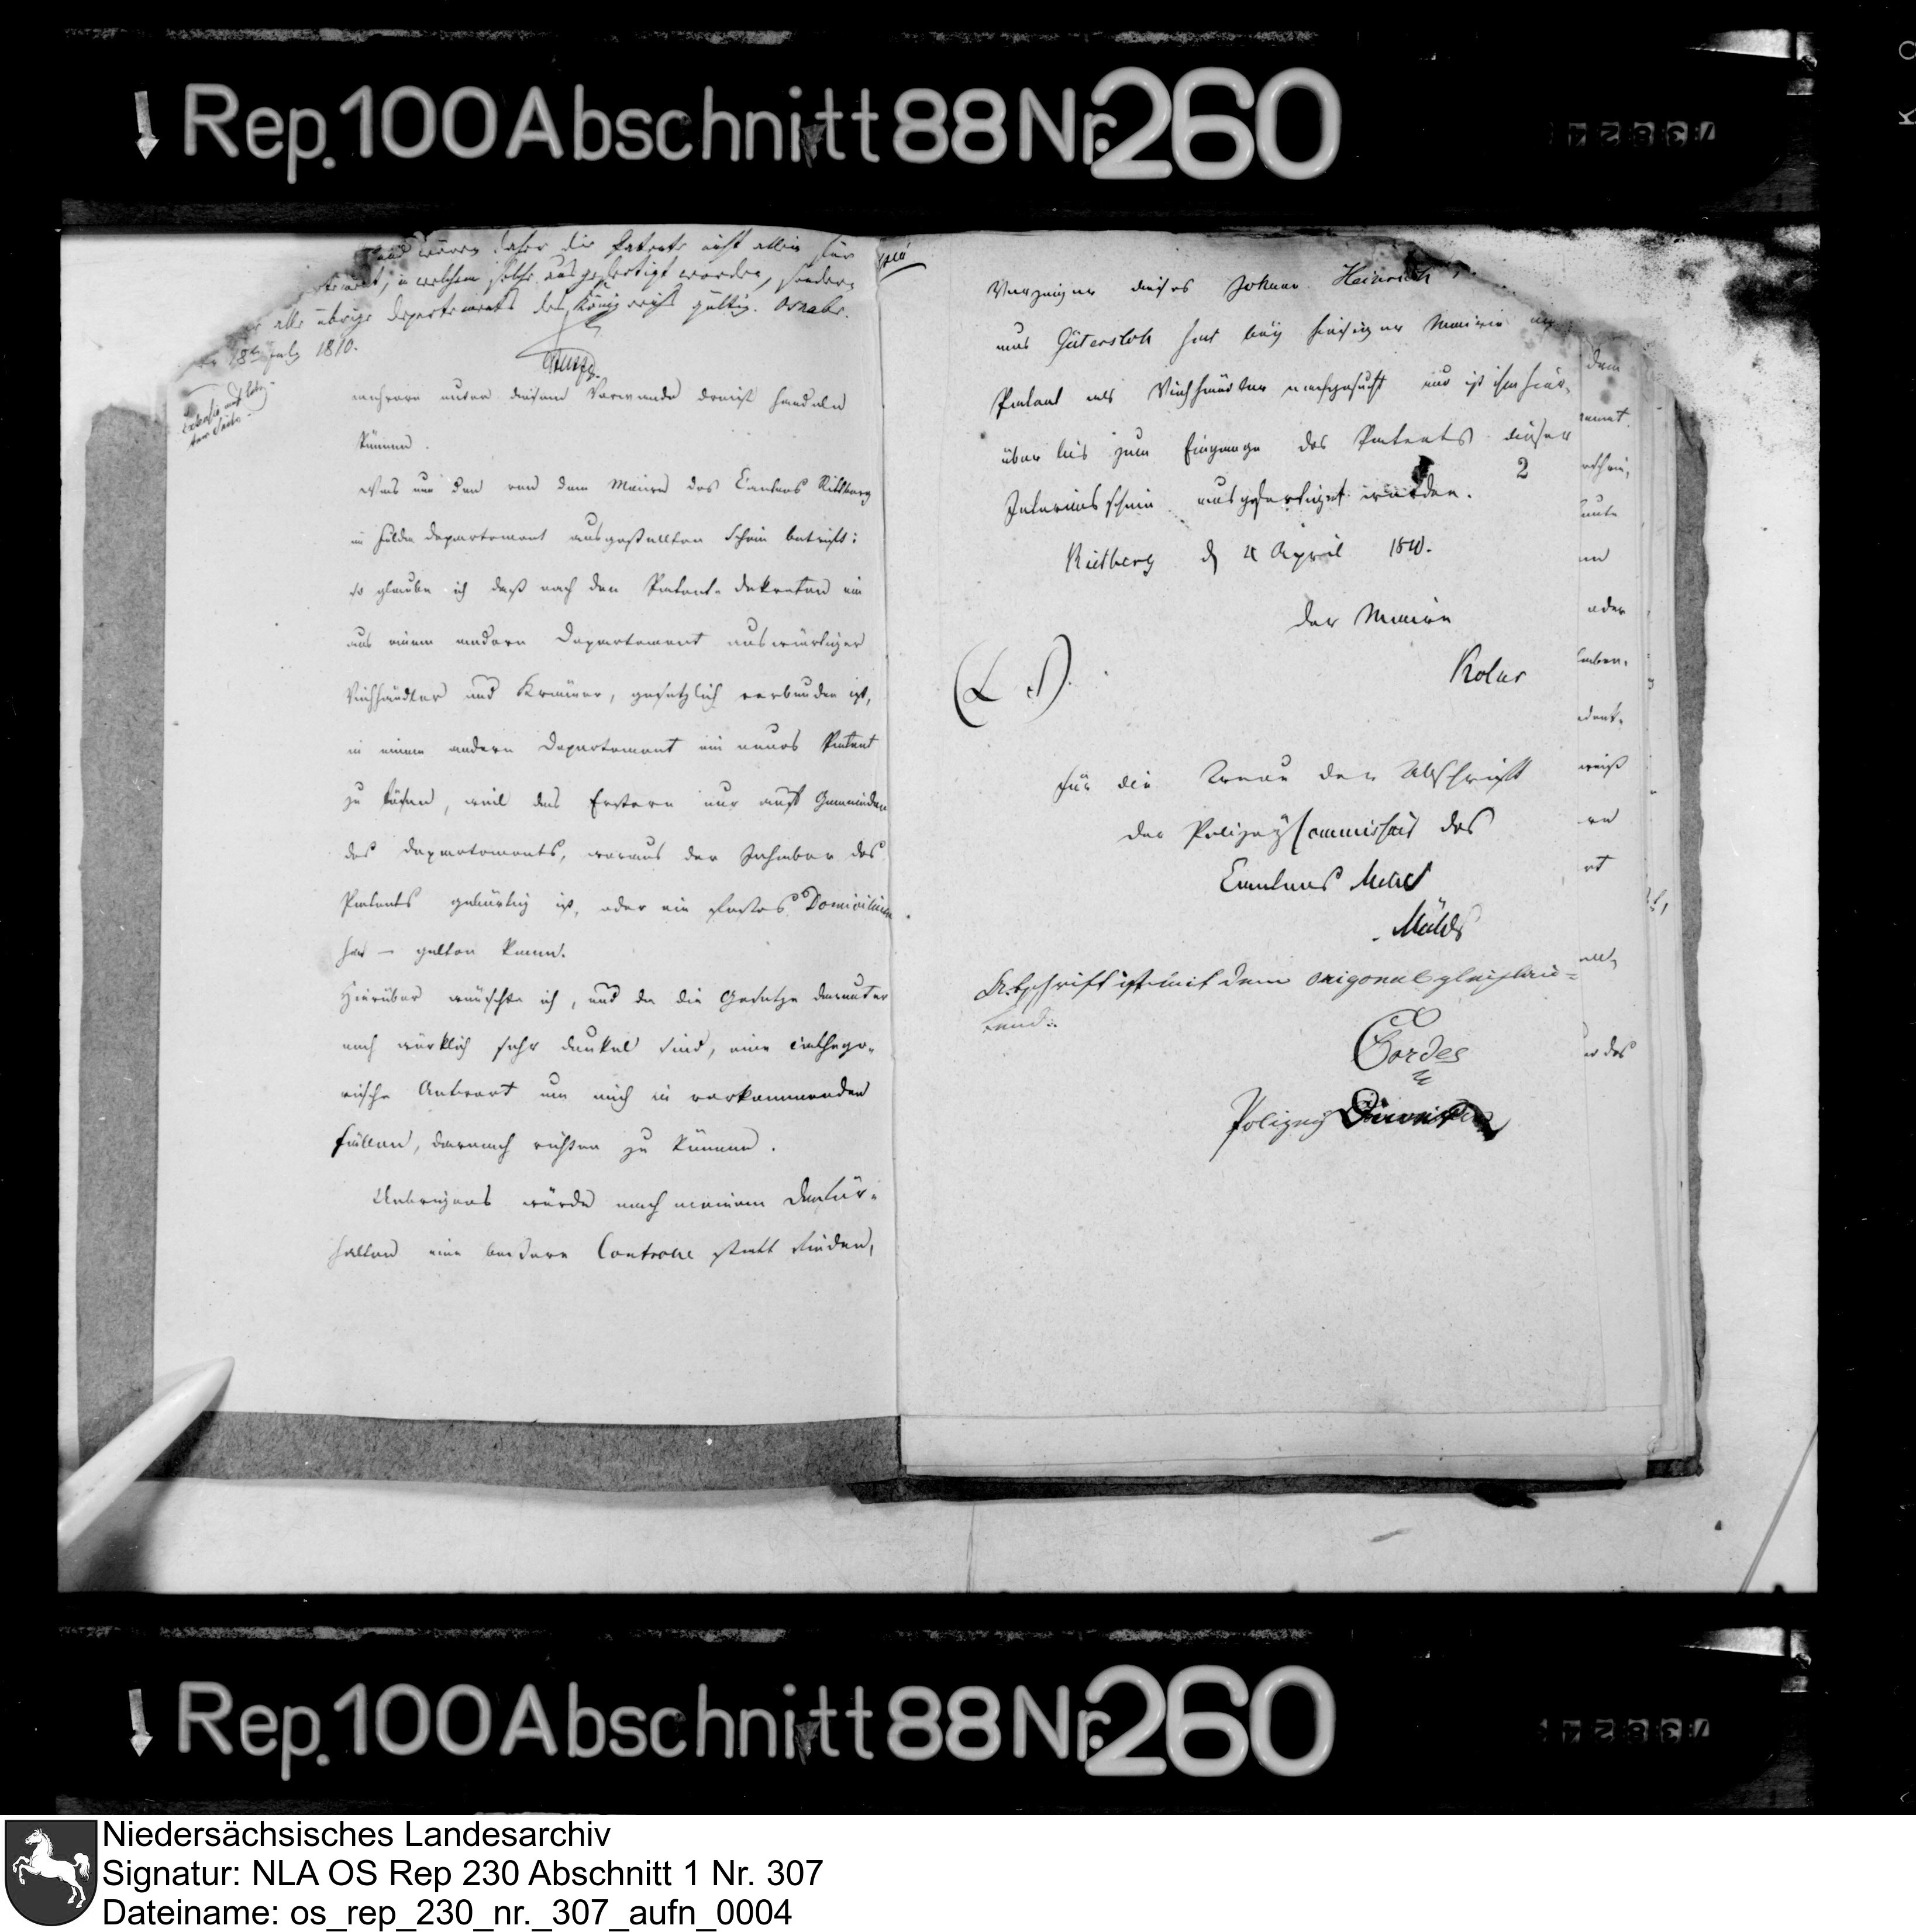 Rep. 100 Abschnitt 88 Nr. 260
und wären daher die Patente nicht allein für
in welchem solche ausgefertigt worden, sondern
alle übrige Departements des Königreichs gültig. Osnabr.
18t July 1810.
mehrere unter diesem Vorwande dreist handeln
können.
Was nun den von dem Maire des Cantons Rittberg
im Fulda Departement ausgestellten Schein betrift:
so glaube ich daß nach den Patent-dekreten ein
aus einem andern Departement auswärtiger
Viehhändler und Krämer, gesetzlich verbunden ist,
in einem andern Departement ein neues Patent
zu lösen, weil das Erstere nur auf Gemeinden
des Departements, woraus der Inhaber des
Patents gebürtig ist, oder ein festes Domicilium
hat — gelten kann.
Hierüber wünschte ich, und da die Gesetze darunter
noch würklich sehr dunkel sind, eine cathego-
rische Antwort um mich in vorkommenden
Fällen, darnach richten zu können.
Uebrigens würde nach meinem Dafür-
halten eine bessere Controlle statt finden,
Vorzeiger dieses Johann Heinrich
aus Gütersloh hat bey hiesiger Mairie um
Patent als Viehhändler nachgesucht und ist ihm hier-
über bis zum Eingange des Patents dieser
2
Interimsschein ausgefertiget worden.
Rietberg d 4 April 1810.
der Maire
(L S).
Für die Treue der Abschrift
der Polizey Commissair des
Cantons
Abschrift ist mit dem original gleichlau-
tend.
Cordes
Polizey
dem
oder
er des
Rep. 100 Abschnitt 88 Nr. 260
Niedersächsisches Landesarchiv
Signatur: NLA OS Rep 230 Abschnitt 1 Nr. 307
Dateiname: os_rep_230_nr._307_aufn_0004